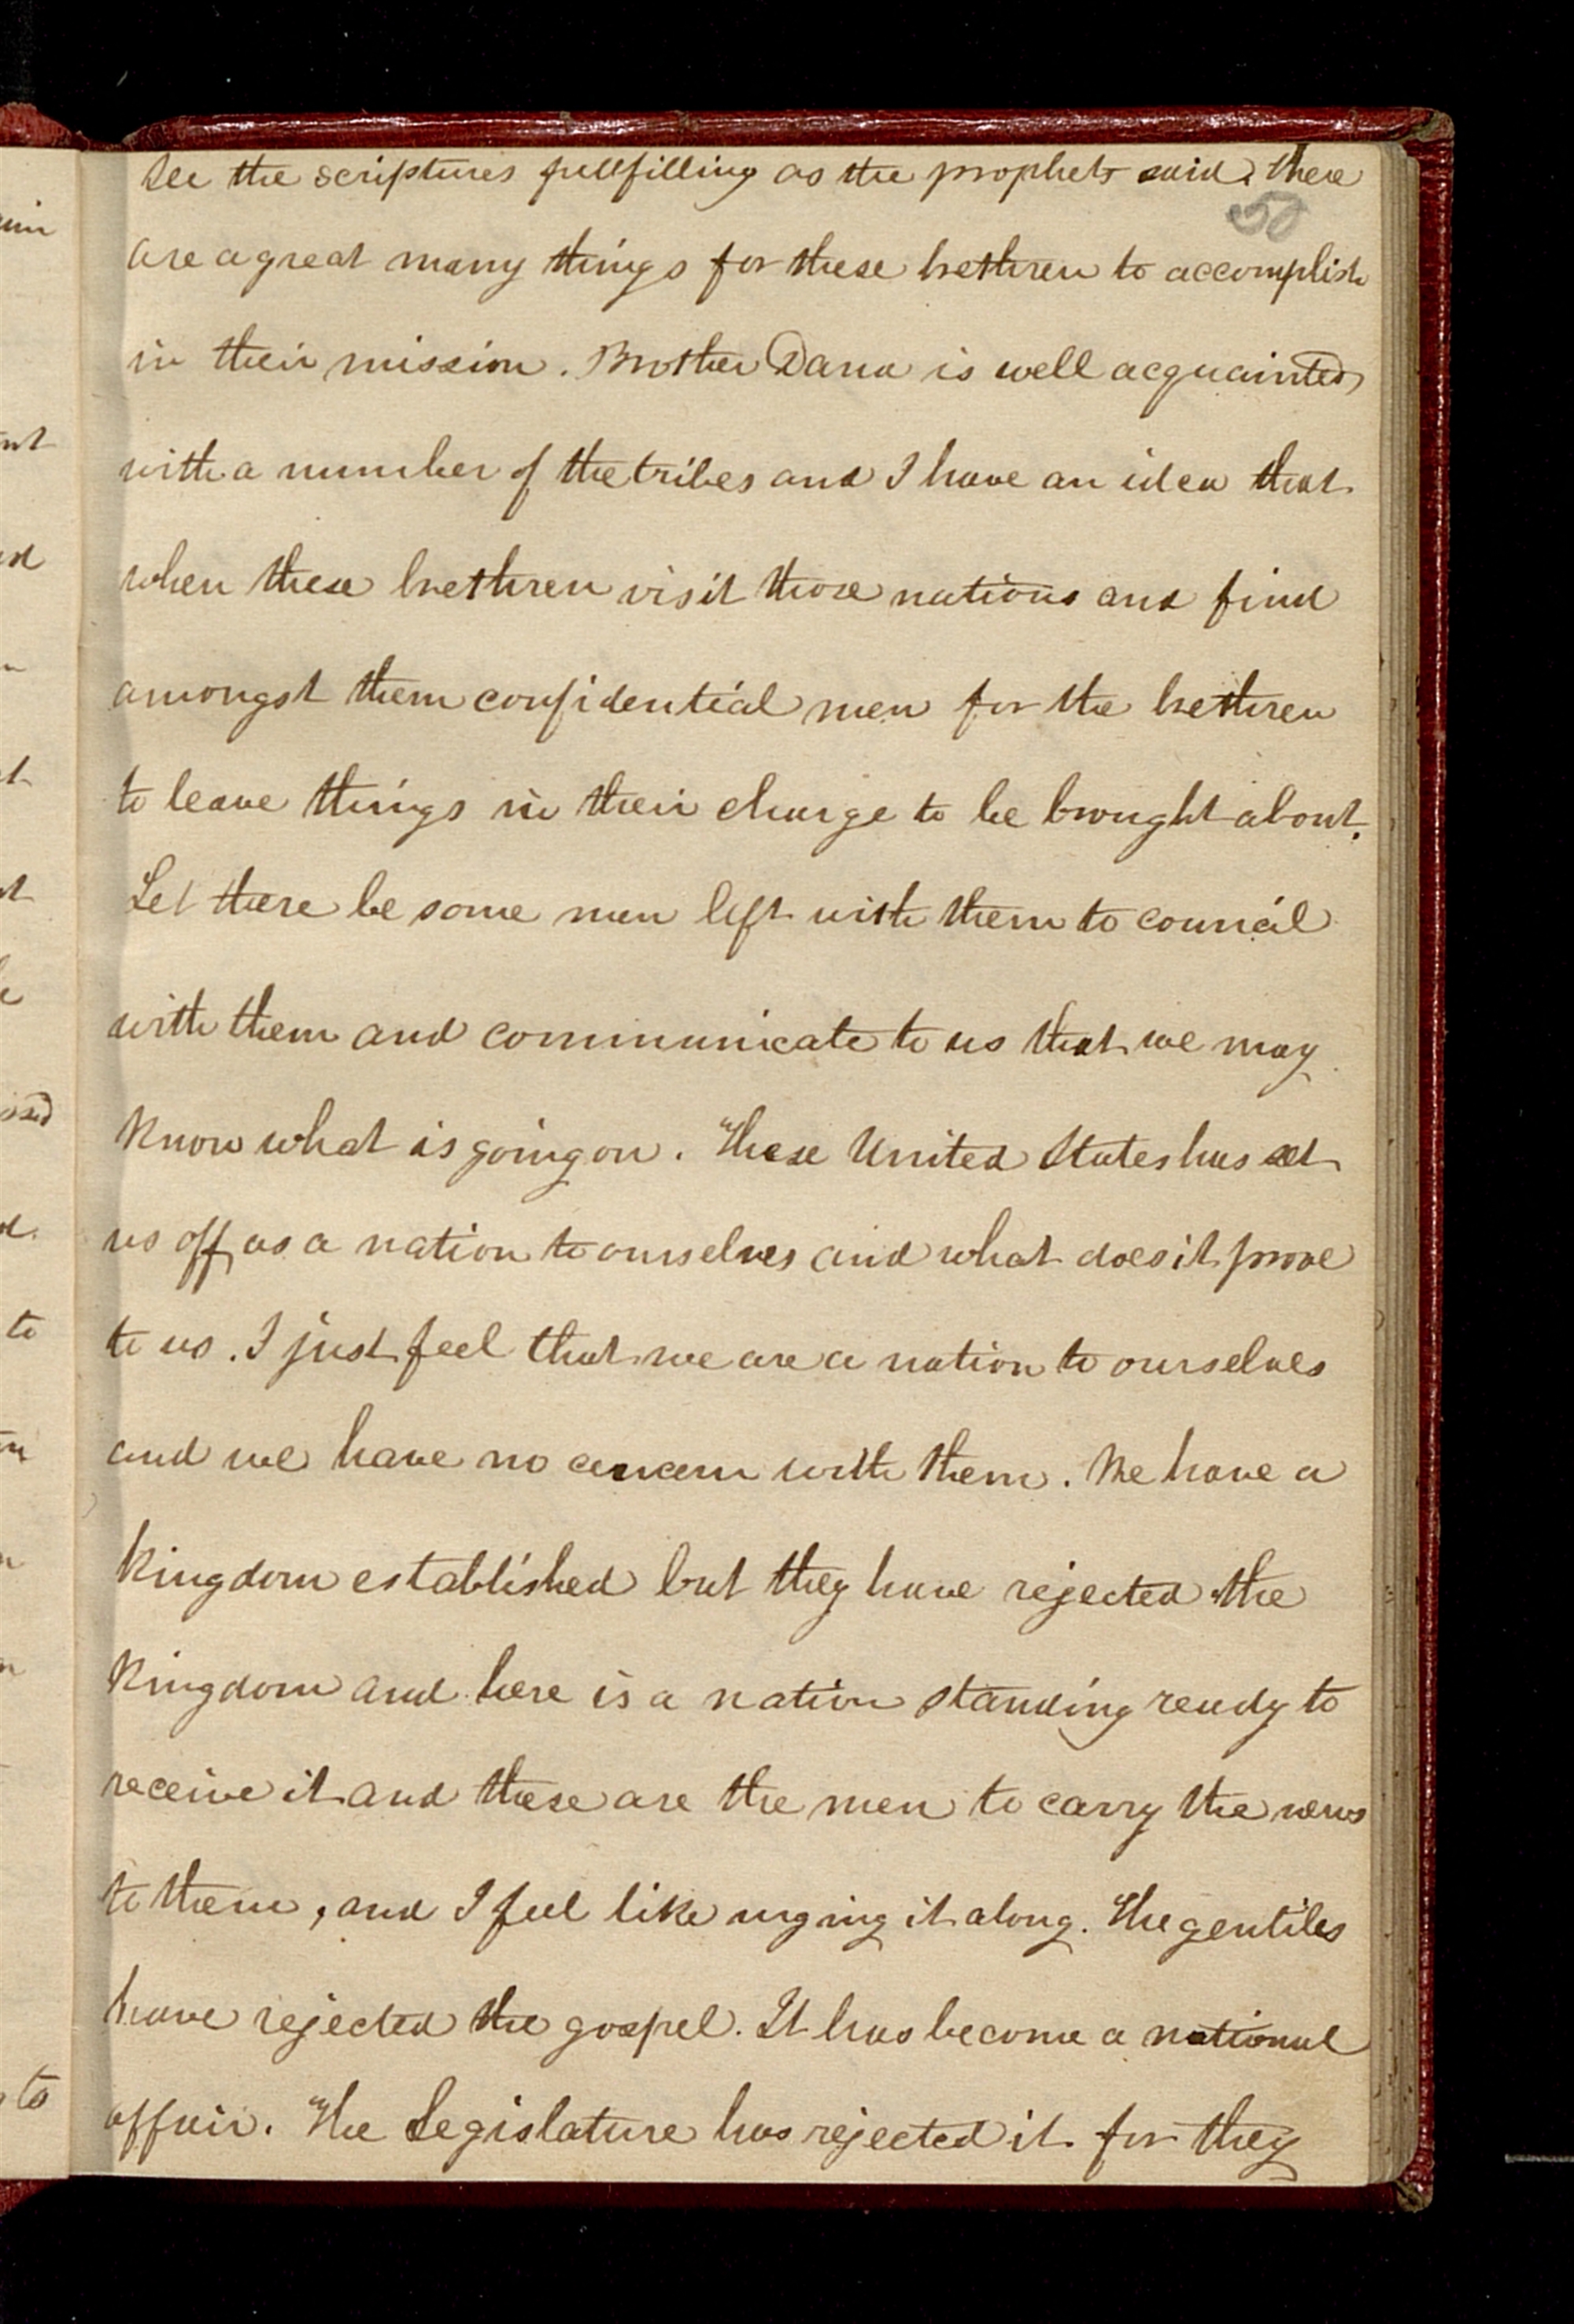 see the scriptures fullfilling as the prophets said. there
50
are a great many things for these brethren to accomplish
in their mission. Brother Dana is well acquainted
with a number of the tribes and I have an idea that
when these brethren visit those nations and find
amongst them confidential men for the brethren
to leave things in their charge to be brought about.
Let there be some men left with them to council
with them and communicate to us that we may
know what is going on. These United States has set
us off as a nation to ourselves and what does it prove
to us. I just feel that we are a nation to ourselves
and we have no concern with them. We have a
kingdom established but they have rejected the
kingdom and here is a nation standing ready to
receive it and these are the men to carry the news
to them, and I feel like urging it along. The gentiles
have rejected the gospel. It has become a national
affair. The Legislature has rejected it for they